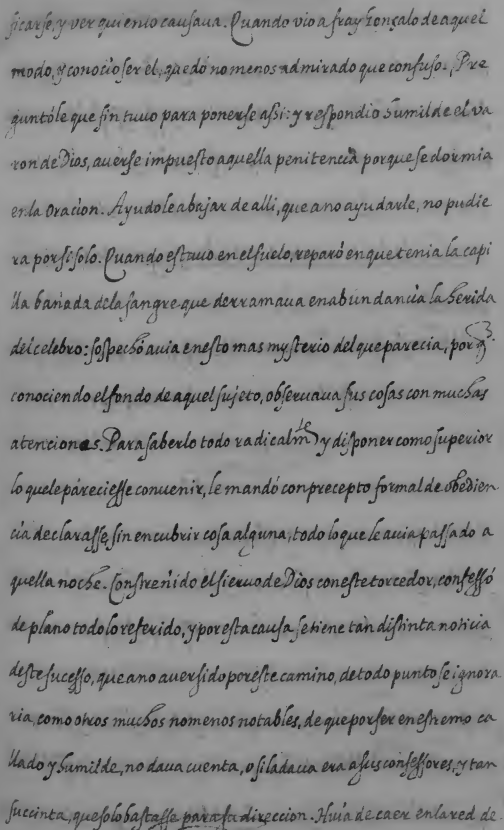 ficarse, y ver quien lo causaua. Quando vio a fray Gonçalo de aquel
modo, y conocio ser el, quedó no menos admirado que confuso. Pre
guntóle que fin tuuo para ponerse assi: y respondio humilde el va
ron de Dios, auerse impuesto aquella penitencia porque se dormia
en la Oracion. Ayudole abajar de alli, que a no ayudarle, no pudie
ra por si solo. Quando estauo en el suelo, reparó en que tenia la capi
lla bañada de la sangre que derramaua en abundancia la herida
del celebro: sospechó auia en esto mas mysterio del que parecia, porq̃
conociendo el fondo de aquel sujeto, obseruaua sus cosas con muchas
atenciones. Para saberlo todo radicalmte y disponer como superior
lo que le pareciesse conuenir, le mandó con precepto formal de obedien
cia declarasse, sin encubrir cosa alguna, todo lo que le auia passado a
quella noche. Constreñido el sieruo de Dios con este torcedor, confessó
de plano todo lo referido, y por esta causa se tiene tan distinta noticia
deste sucesso, que a no auer sido por este camino, de todo punto se ignora
ria, como otros muchos no menos notables, de que por ser en estremo ca
llado y humilde, no daua cuenta, o si la daua era a sus confessores, y tan
succinta, que solo bastasse para su direccion. Huía de caer en la red de